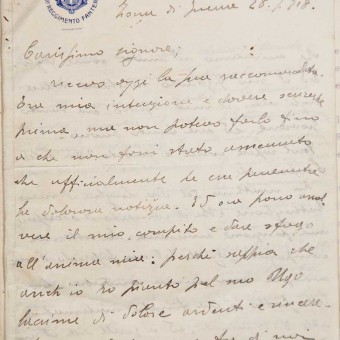 REGGIMENTO FANTERIA
Zona di Guerra 28. 918.
Carissimo signore,
ricevo oggi la sua raccomandata.
Era mia intenzione e dovere scriverle
prima ma non potevo farlo fino
a che non fossi stato assicurato
che ufficialmente le era pervenuta
la dolorosa notizia. Ed ora posso assol
vere il mio compito e dare sfogo
all'anima mia: perchè sappia che
anch'io ho pianto pel mio Ugo
lacrime di dolore ardenti e sincere
di noi